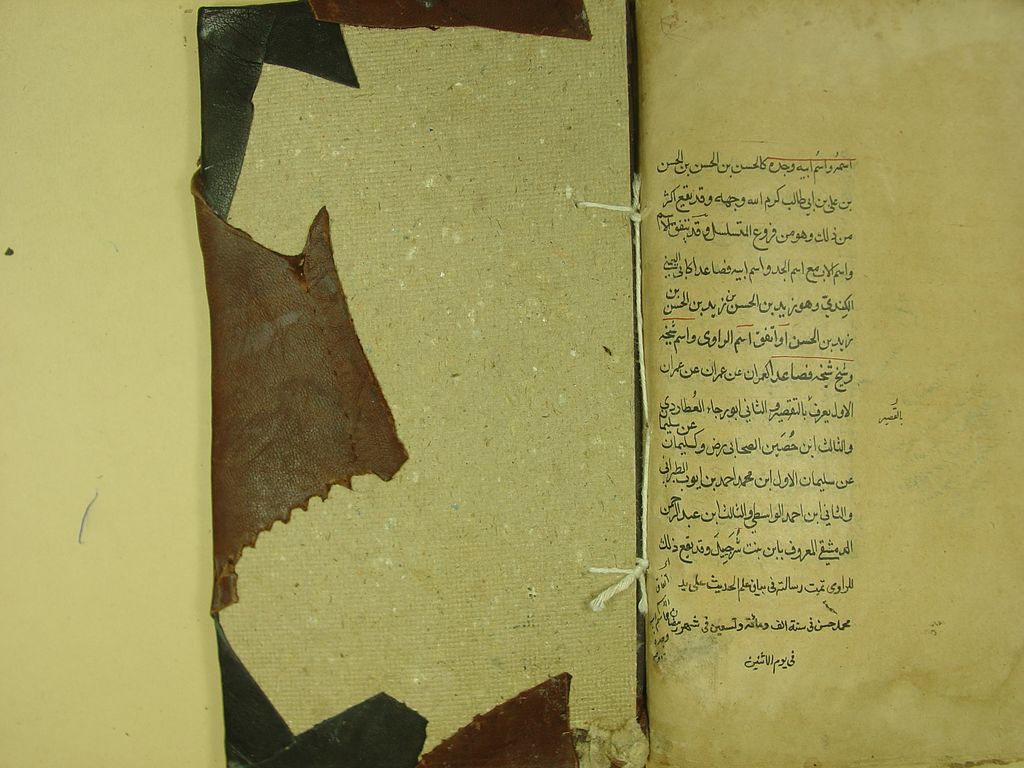 اسمه واسم ابيه وجده كالحسن بن الحسن بن الحسن
بن علي بن ابي طالب كرم الله وجهه وقد يقع اكثر
من ذلك وهو من فروع المتسلسل وقد يتفق الاسم
واسم الاب مع اسم الجد واسم ابيه فصاعدا كابي اليمن
الكندي وهو زيد بن الحسن بن زيد بن الحسن بن
زيد بن الحسن او اتفق اسم الراوى واسم شيخه
وشيخ شيخه فصاعدا كعمران عن عمران عن عمران
الاول يعرف بالتقصير والثاني ابو رجاء العطاردي
والثالث ابن حُصَين الصحابى رض وكسليمان عن سليمان
عن سليمان الاول ابن محمد احمد بن ايوب الطبراني
والثاني ابن احمد الواسطي والثالث ابن عبد الرحمن
الدمشقي المعروف بابن بنت شُرَحبِيل وقد يقع ذلك
للراوى تمت رسالته فى بيان علم الحديث على يد
محمد حسن فى سنة الف ومائة وتسعين فى شهر
فى يوم الاثنين
بالقَصير